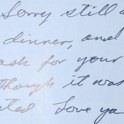 Sorry still a
dinner, and
ask for your
though it was
ated Love ya